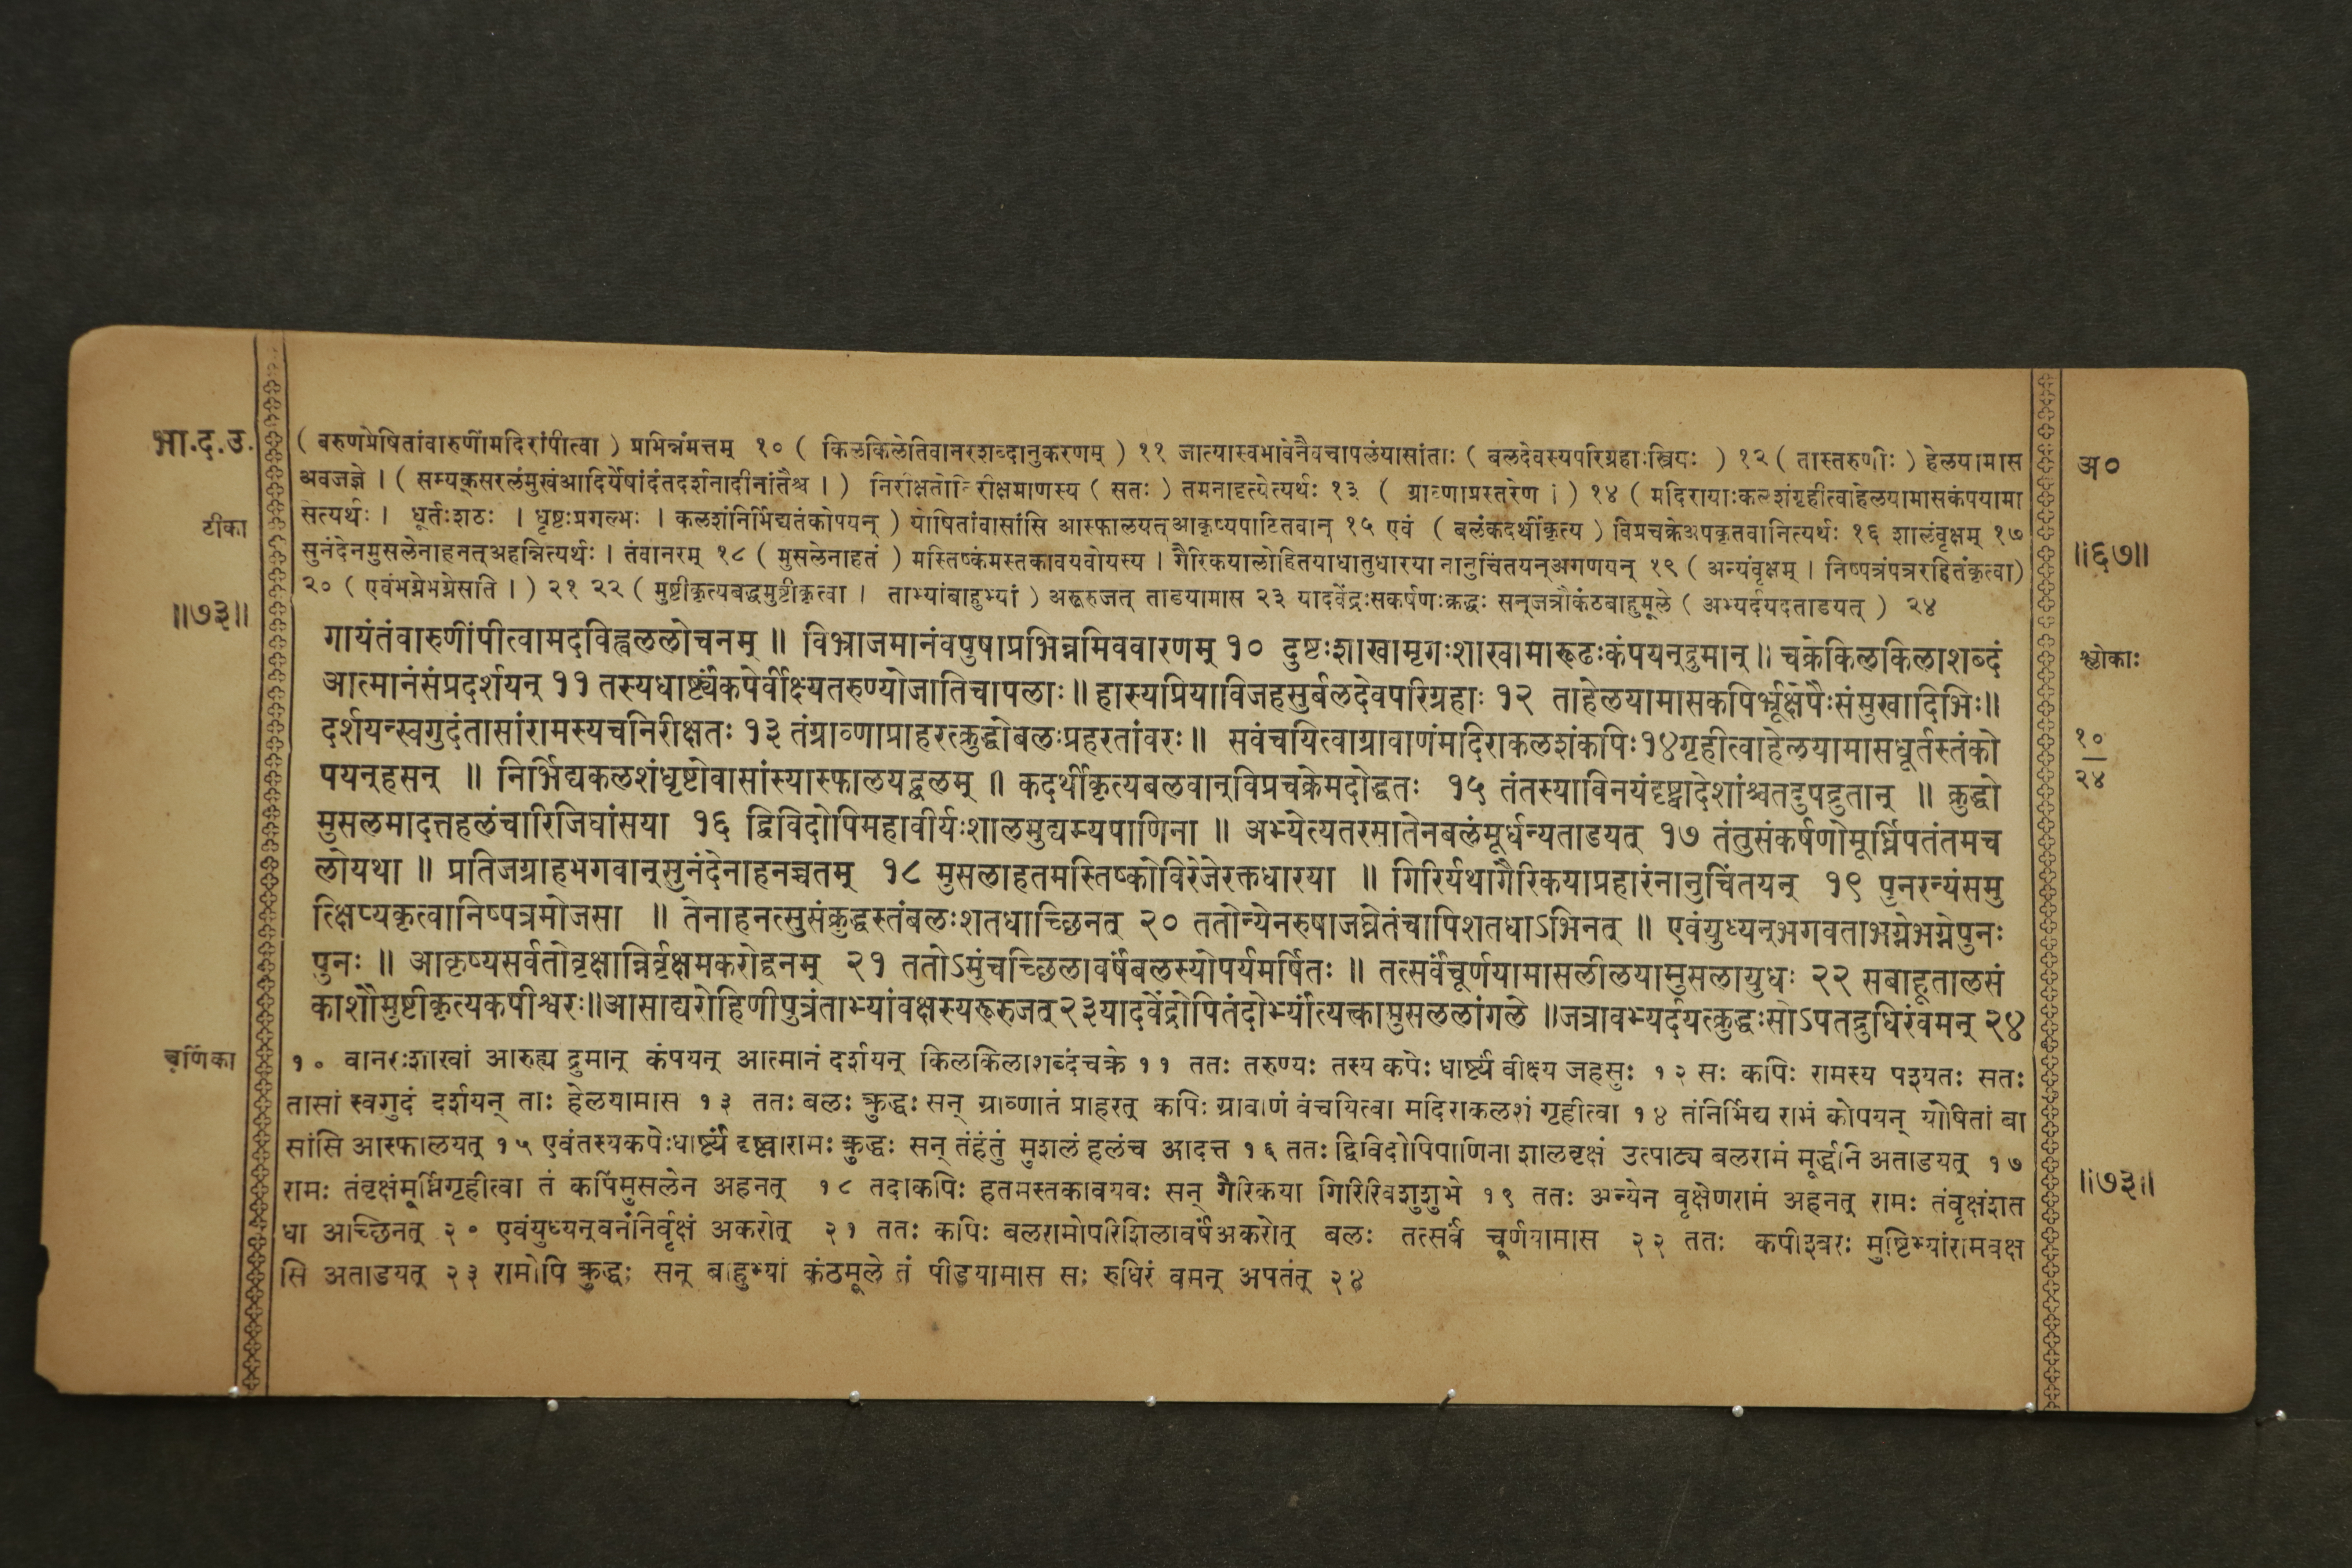 भा.द.उ.
टीका
॥७३॥
( वरुणप्रेषितांवारुणींमदिरांपीत्वा ) प्रभिन्नंमत्तम् १० ( किलकिलेतिवानरशब्दानुकरणम् ) ११ जात्यास्वभावेनैवचापलंयासांताः ( बलदेवस्यपरिग्रहाःस्त्रियः ) १२ ( तास्तरुणीः ) हेलयामास
अवजज्ञे । ( सम्यक्सरलंमुखंआदिर्येषांदंतदर्शनादीनांतैश्च । ) निरीक्षतोनिरीक्षमाणस्य ( सतः ) तमनादृत्येत्यर्थः १३ ( ग्राव्णाप्रस्तरेण । ) १४ ( मदिरायाःकलशंगृहीत्वाहेलयामासकंपयामा
सत्यर्थः । धूर्तःशठः । धृष्टःप्रगल्भः । कलशंनिर्भिद्यतंकोपयन् ) योषितांवासांसि आस्फालयत्आकृष्यपाटितवान् १५ एवं ( बलंकदर्थीकृत्य ) विप्रचक्रेअपकृतवानित्यर्थः १६ शालंवृक्षम् १७
सुनंदेनमुसलेनाहनत्अहन्नित्यर्थः । तंवानरम् १८ ( मुसलेनाहतं ) मस्तिष्कंमस्तकावयवोयस्य । गैरिकयालोहितयाधातुधारया नानुचिंतयन्अगणयन् १९ ( अन्यंवृक्षम् । निष्पत्रंपत्ररहितंकृत्वा)
२० ( एवंभग्नेभग्नेसति । ) २१ २२ ( मुष्टीकृत्यबद्धमुष्टीकृत्वा । ताभ्यांबाहुभ्यां ) अरूरुजत् ताडयामास २३ यादवेंद्रःसकर्षणःक्रद्धः सन्जत्रौकंठबाहुमूले ( अभ्यर्दयदताडयत् ) २४
गायंतंवारुणींपीत्वामदविह्वललोचनम् ॥ विभ्राजमानंवपुषाप्रभिन्नमिववारणम् १० दुष्टःशाखामृगःशाखामारूढःकंपयन्द्रुमान् ॥ चक्रेकिलकिलाशब्दं
आत्मानंसंप्रदर्शयन् ११ तस्यधार्ष्ट्यंकपेर्वीक्ष्यतरुण्योजातिचापलाः ॥ हास्यप्रियाविजहसुर्बलदेवपरिग्रहाः १२ ताहेलयामासकपिर्भ्रूक्षेपैःसंमुखादिभिः॥
दर्शयन्स्वगुदंतासांरामस्यचनिरीक्षतः १३ तंग्राव्णाप्राहरत्क्रुद्धोबलःप्रहरतांवरः ॥ सवंचयित्वाग्रावाणंमदिराकलशंकपिः१४गृहीत्वाहेलयामासधूर्तस्तंको
पयन्हसन् ॥ निर्भिद्यकलशंधृष्टोवासांस्यास्फालयद्बलम् ॥ कदर्थीकृत्यबलवान्विप्रचक्रेमदोद्धतः १५ तंतस्याविनयंदृष्ट्वादेशांश्चतदुपद्रुतान् ॥ क्रुद्धो
मुसलमादत्तहलंचारिजिघांसया १६ द्विविदोपिमहावीर्यःशालमुद्यम्यपाणिना ॥ अभ्येत्यतरसातेनबलंमूर्धन्यताडयत् १७ तंतुसंकर्षणोमूर्ध्निपतंतमच
लोयथा ॥ प्रतिजग्राहभगवान्सुनंदेनाहनच्चतम् १८ मुसलाहतमस्तिष्कोविरेजेरक्तधारया ॥ गिरिर्यथागैरिकयाप्रहारंनानुचिंतयन् १९ पुनरन्यंसमु
त्क्षिप्यकृत्वानिष्पत्रमोजसा ॥ तेनाहनत्सुसंक्रुद्धस्तंबलःशतधाच्छिनत् २० ततोन्येनरुषाजघ्नेतंचापिशतधाऽभिनत् ॥ एवंयुध्यन्भगवताभग्नेभग्नेपुनः
पुनः ॥ आकृष्यसर्वतोवृक्षान्निर्वृक्षमकरोद्वनम् २१ ततोऽमुंचच्छिलावर्षंबलस्योपर्यमर्षितः ॥ तत्सर्वंचूर्णयामासलीलयामुसलायुधः २२ सबाहूतालसं
काशौमुष्टीकृत्यकपीश्वरः॥आसाद्यरोहिणीपुत्रंताभ्यांवक्षस्यरूरुजत्२३यादवेंद्रोपितंदोर्भ्यांत्यक्त्वामुसललांगले ॥जत्रावभ्यर्दयत्क्रुद्धःसोऽपतद्रुधिरंवमन् २४
चूर्णिका
१० वानरःशाखां आरुह्य द्रुमान् कंपयन् आत्मानं दर्शयन् किलकिलाशब्दंचक्रे ११ ततः तरुण्यः तस्य कपेः धार्ष्ट्यं वीक्ष्य जहसुः १२ सः कपिः रामस्य पश्यतः सतः
तासां स्वगुदं दर्शयन् ताः हेलयामास १३ ततः बलः क्रुद्धः सन् ग्राव्णातं प्राहरत् कपिः ग्रावाणं वंचयित्वा मदिराकलशं गृहीत्वा १४ तंनिर्भिद्य रामं कोपयन् योषितां वा
सांसि आस्फालयत् १५ एवंतस्यकपेःधार्ष्ट्यं दृष्ट्वारामः क्रुद्धः सन् तंहंतुं मुशलं हलंच आदत्त १६ ततः द्विविदोपिपाणिना शालवृक्षं उत्पाट्य बलरामं मूर्द्धनि अताडयत् १७
रामः तंवृक्षंमूर्ध्निगृहीत्वा तं कपिंमुसलेन अहनत् १८ तदाकपिः हतमस्तकावयवः सन् गैरिकया गिरिरिवशुशुभे १९ ततः अन्येन वृक्षेणरामं अहनत् रामः तंवृक्षंशत
धा अच्छिनत् २० एवंयुध्यन्वनंनिर्वृक्षं अकरोत् २१ ततः कपिः बलरामोपरिशिलावर्षंअकरोत् बलः तत्सर्वं चूर्णयामास २२ ततः कपीश्वरः मुष्टिभ्यांरामवक्ष
सि अताडयत् २३ रामोपि क्रुद्धः सन् बाहुभ्यां कंठमूले तं पीडयामास सः रुधिरं वमन् अपतत् २४
अ०
॥६७॥
श्लोकाः
१०
२४
॥७३॥